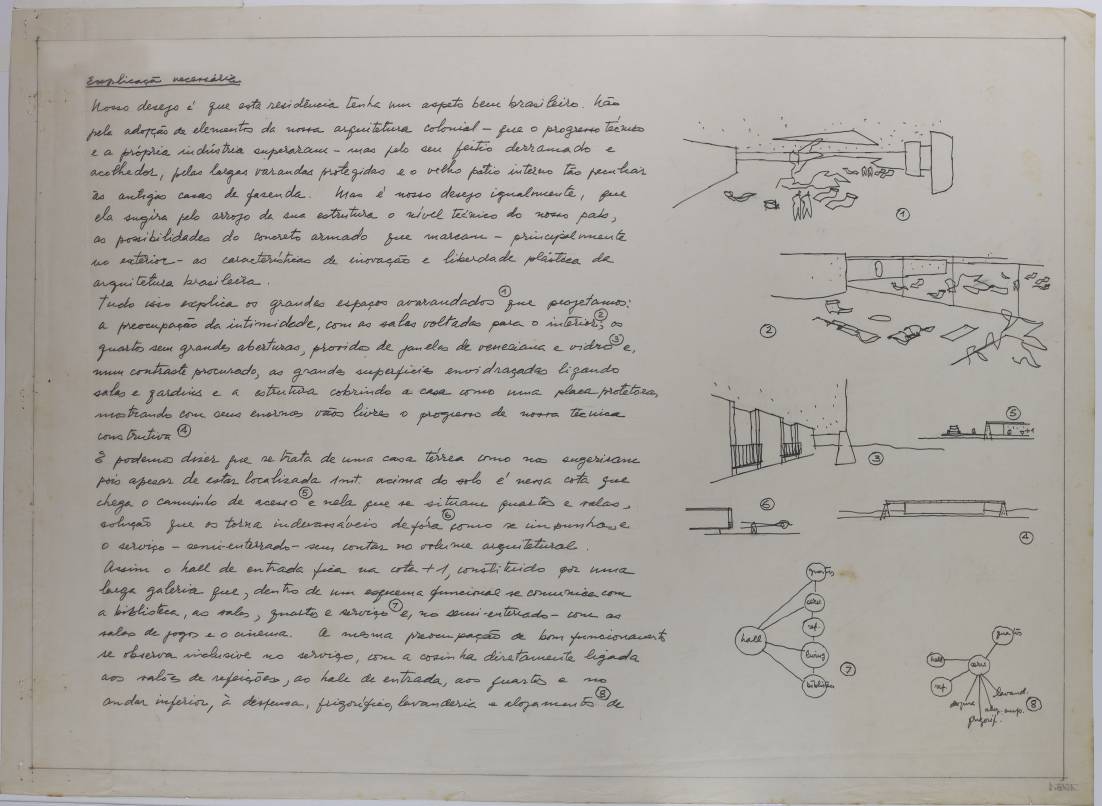 Explicação necessária
Nosso desejo é que esta residência tenha um aspeto bem brasileiro. Não
pela adopção de elementos da nossa arquitetura colonial – que o progresso técnico
e a própria indústria superaram – mas pelo seu feitio derramado e
acolhedor, pelas largas varandas protegidas e o velho pátio interno tão peculiar
às antigas casas de fazenda. Mas é nosso desejo igualmente, que
ela sugira pelo arrojo de sua estrutura o nível técnico do nosso país,
as possibilidades do concreto armado que marcam – principalmente
no exterior – as características de inovação e liberdade plástica da
arquitetura brasileira.
Tudo isso explica os grandes espaços avarandados ① que projetamos:
a preocupação da intimidade, com as salas voltadas para o interior ②, os
quartos sem grandes aberturas, providos de janelas de veneziana e vidro ③ e,
num contraste procurado, as grandes superfícies envidraçadas ligando
salas e jardins e a estrutura cobrindo a casa como uma placa protetora,
mostrando com seus enormes vãos livres o progresso de nossa técnica
construtiva ④
E podemos dizer que se trata de uma casa térrea como nos sugeriram
pois apesar de estar localizada 1mt. acima do solo é nessa cota que
chega o caminho de acesso ⑤ e nela que se situam quartos e salas,
solução que os torna indevassáveis de fóra ⑥ como se impunha, e
o serviço – semi-enterrado – sem contar no volume arquitetural.
Assim o hall de entrada fica na cota +1, constituido por uma
larga galeria que, dentro de um esquema funcional se comunica com
a biblioteca, as salas, quartos e serviço ⑦ e, no semi-enterrado – com as
salas de jogos e o cinema. A mesma preocupação de bom funcionamento
se observa inclusive no serviço, com a cosinha diretamente ligada
aos salões de refeições, ao hall de entrada, aos quartos e no
andar inferior, à despensa, frigorífico, lavanderia e alojamentos ⑧ de
①
②
③
⑤
+1
⑥
④
quartos
hall
ref.
living
biblioteca
⑦
quartos
hall
ref
lavand.
frigorif.
⑧